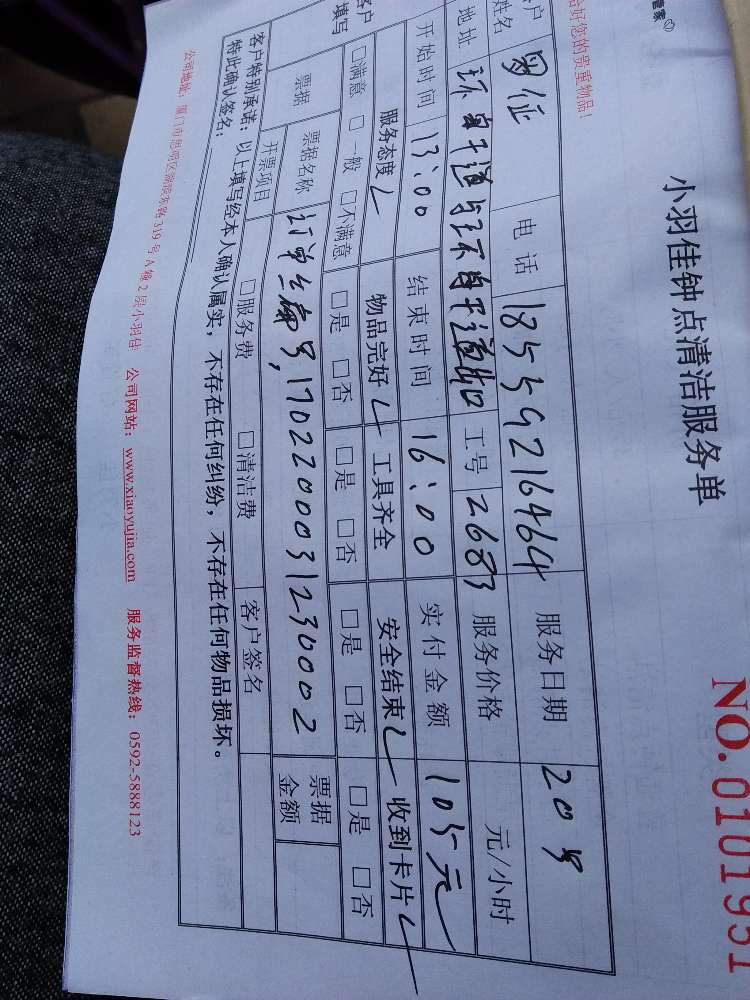 管家
小羽佳钟点清洁服务单
NO.0101951
恰好您的贵重物品！
户姓名 电话 18559216464 服务日期 20号
地址 工号 2683 服务价格 元/小时
开始时间 13:00 结束时间 16:00 实付金额 105元
客户填写 服务态度 物品完好 工具齐全 安全结束 收到卡片
□满意 □一般 □不满意 □是 □否 □是 □否 □是 □否 □是 □否
票据 票据名称 订单编号,1702200031230002 票据金额
开票项目 □服务费 □清洁费 客户签名
客户特别承诺：以上填写经本人确认属实，不存在任何纠纷，不存在任何物品损坏。
特此确认签名：
公司地址：厦门市思明区湖滨东路319号A幢2层小羽佳 公司网站：www.xiaoyujia.com 服务监督热线：0592-5888123